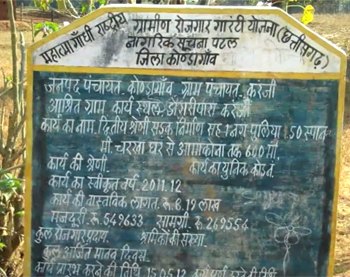 महात्मा गाँधी राष्ट्रीय ग्रामीण रोजगार गारंटी योजना (छत्तीसगढ़)
नागरिक सूचना पटल
जिला कोण्डागाँव
जनपद पंचायत, कोण्डागाँव, ग्राम पंचायत, करंजी
आश्रित ग्राम कार्य स्थल, डोंगरीपारा करंजी
कार्य का नाम. द्वितीय श्रेणी सड़क निर्माण सह 1 नग पुलिया 1.50 स्पान
मी चरखा घर से आमाकोना तक 600 मी.
कार्य की श्रेणी. कार्य का युनिक कोड नं.
कार्य का स्वीकृत वर्ष. 2011.12
कार्य की वास्तविक लागत. रू 8.19 लाख
मजदुरी. रू. 549633 सामग्री. रू. 269554
कुल रोजगार प्रदाय. श्रमिकों की संख्या.
कुल अर्जित मानव दिवस.
कार्य प्रारंभ करने की तिथि 15.05.12